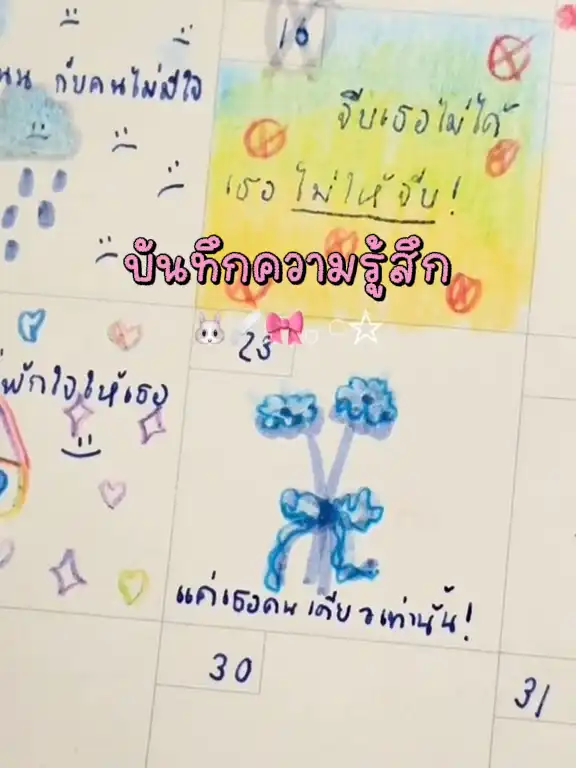 16
นน กับคนไม่มีใจ
จีบเธอไม่ได้
เธอ ไม่ให้จีบ!
บันทึกความรู้สึก
23
พักใจให้เธอ
แค่เธอคนเดียวเท่านั้น!
30
31